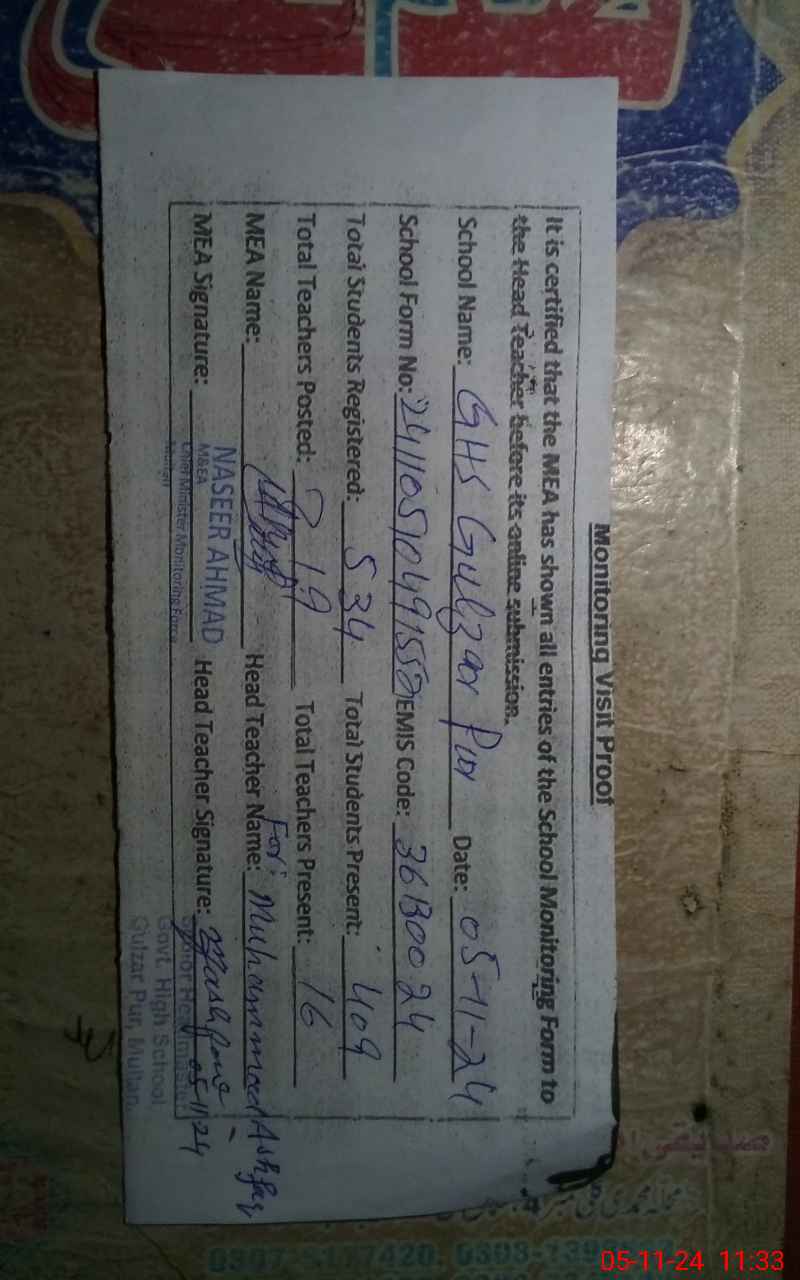 Monitoring Visit Proof
It is certified that the MEA has shown all entries of the School Monitoring Form to
the Head Teacher before its online submission.
School Name: GHS Gulzar Pur Date: 05-11-24
School Form No: EMIS Code: 36130024
Total Students Registered: 534 Total Students Present: 409
Total Teachers Posted: 19 Total Teachers Present: 16
MEA Name: Head Teacher Name: For: Muhammad Ashfaq
MEA Signature: NASEER AHMAD Head Teacher Signature: Mashfaq
M&EA
Chief Minister Monitoring Force
Multan
Senior Headmaster 05-11-24
Govt. High School
Gulzar Pur, Multan
05-11-24 11:33